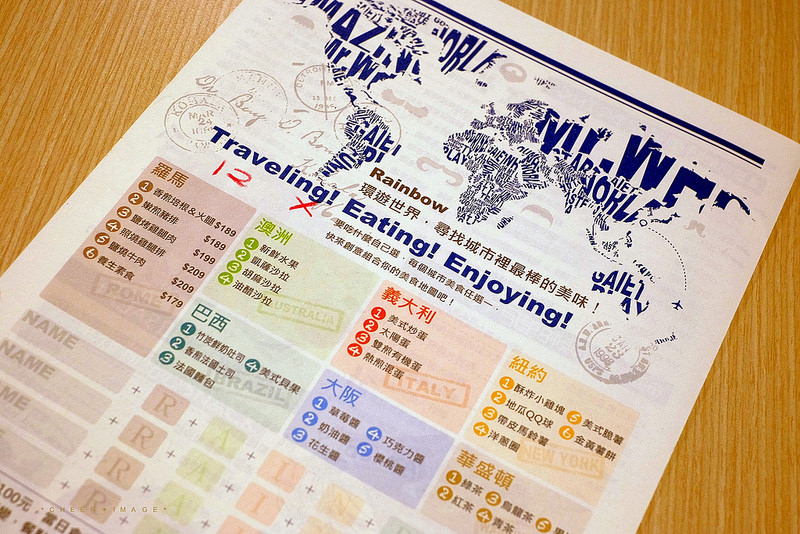 Traveling! Eating! Enjoying!
12 X
Rainbow
環遊世界,尋找城市裡最棒的美味!
要吃什麼自己選,每個城市美食任選一,
快來創意組合你的美食地圖吧!
羅馬
1 香煎培根&火腿 $189
2 嫩煎豬排 $189
3 鹽烤雞腿肉 $199
4 照燒雞腿排 $199
5 鹽燒牛肉 $209
6 養生素食 $179
ROME
澳洲
1 新鮮水果
2 凱薩沙拉
3 胡麻沙拉
4 油醋沙拉
AUSTRALIA
巴西
1 竹炭鮮奶吐司
2 香煎法國土司
3 法國麵包
4 美式貝果
BRAZIL
義大利
1 美式炒蛋
2 太陽蛋
3 雙煎有機蛋
4 熱煎混蛋
ITALY
大阪
1 草莓醬
2 奶油醬
3 花生醬
4 巧克力醬
5 櫻桃醬
紐約
1 酥炸小雞塊
2 地瓜QQ球
3 帶皮馬鈴薯
4 洋蔥圈
5 美式脆薯
6 金黃薯餅
NEW YORK
華盛頓
1 綠茶
2 紅茶
3 烏龍茶
4 青茶
5
NAME
NAME
NAME
R
R A
R A I
R A I
100元,當日會
*CHEER*IMAGE*